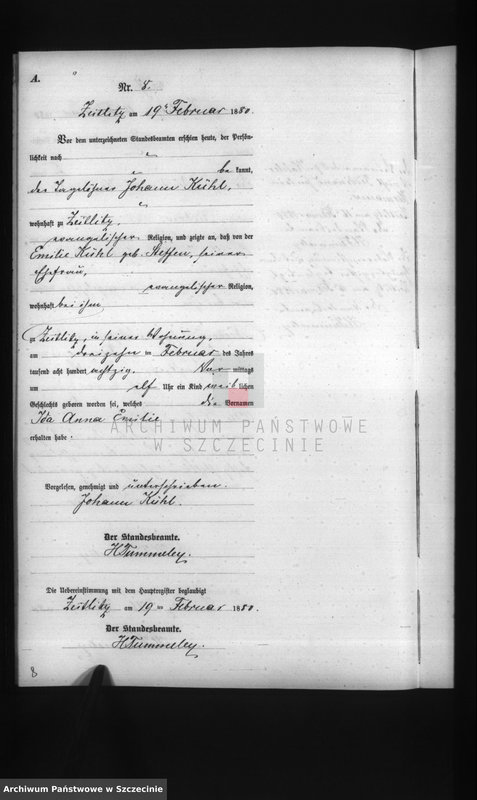 A.
Nr. 8.
Zeitlitz am 19ten Februar 1880.
Vor dem unterzeichneten Standesbeamten erschien heute, der Persön-
lichkeit nach
be kannt,
der Tagelöhner Johann Kühl,
wohnhaft zu Zeitlitz,
evangelischer Religion, und zeigte an, daß von der
Emilie Kühl geb. Steffen, seiner
Ehefrau,
evangelischer Religion,
wohnhaft bei ihm
zu Zeitlitz, in seiner Wohnung,
am dreizehn ten Februar des Jahres
tausend acht hundert achtzig, Vor mittags
um elf Uhr ein Kind weib lichen
Geschlechts geboren worden sei, welches die Vornamen
Ida Anna Emilie
erhalten habe.
ARCHIWUM PAŃSTWOWE
W SZCZECINIE
Vorgelesen, genehmigt und unterschrieben.
Johann Kühl.
Der Standesbeamte.
Die Uebereinstimmung mit dem Hauptregister beglaubigt
Zeitlitz am 19ten Februar 1880.
Der Standesbeamte.
8
Archiwum Państwowe w Szczecinie